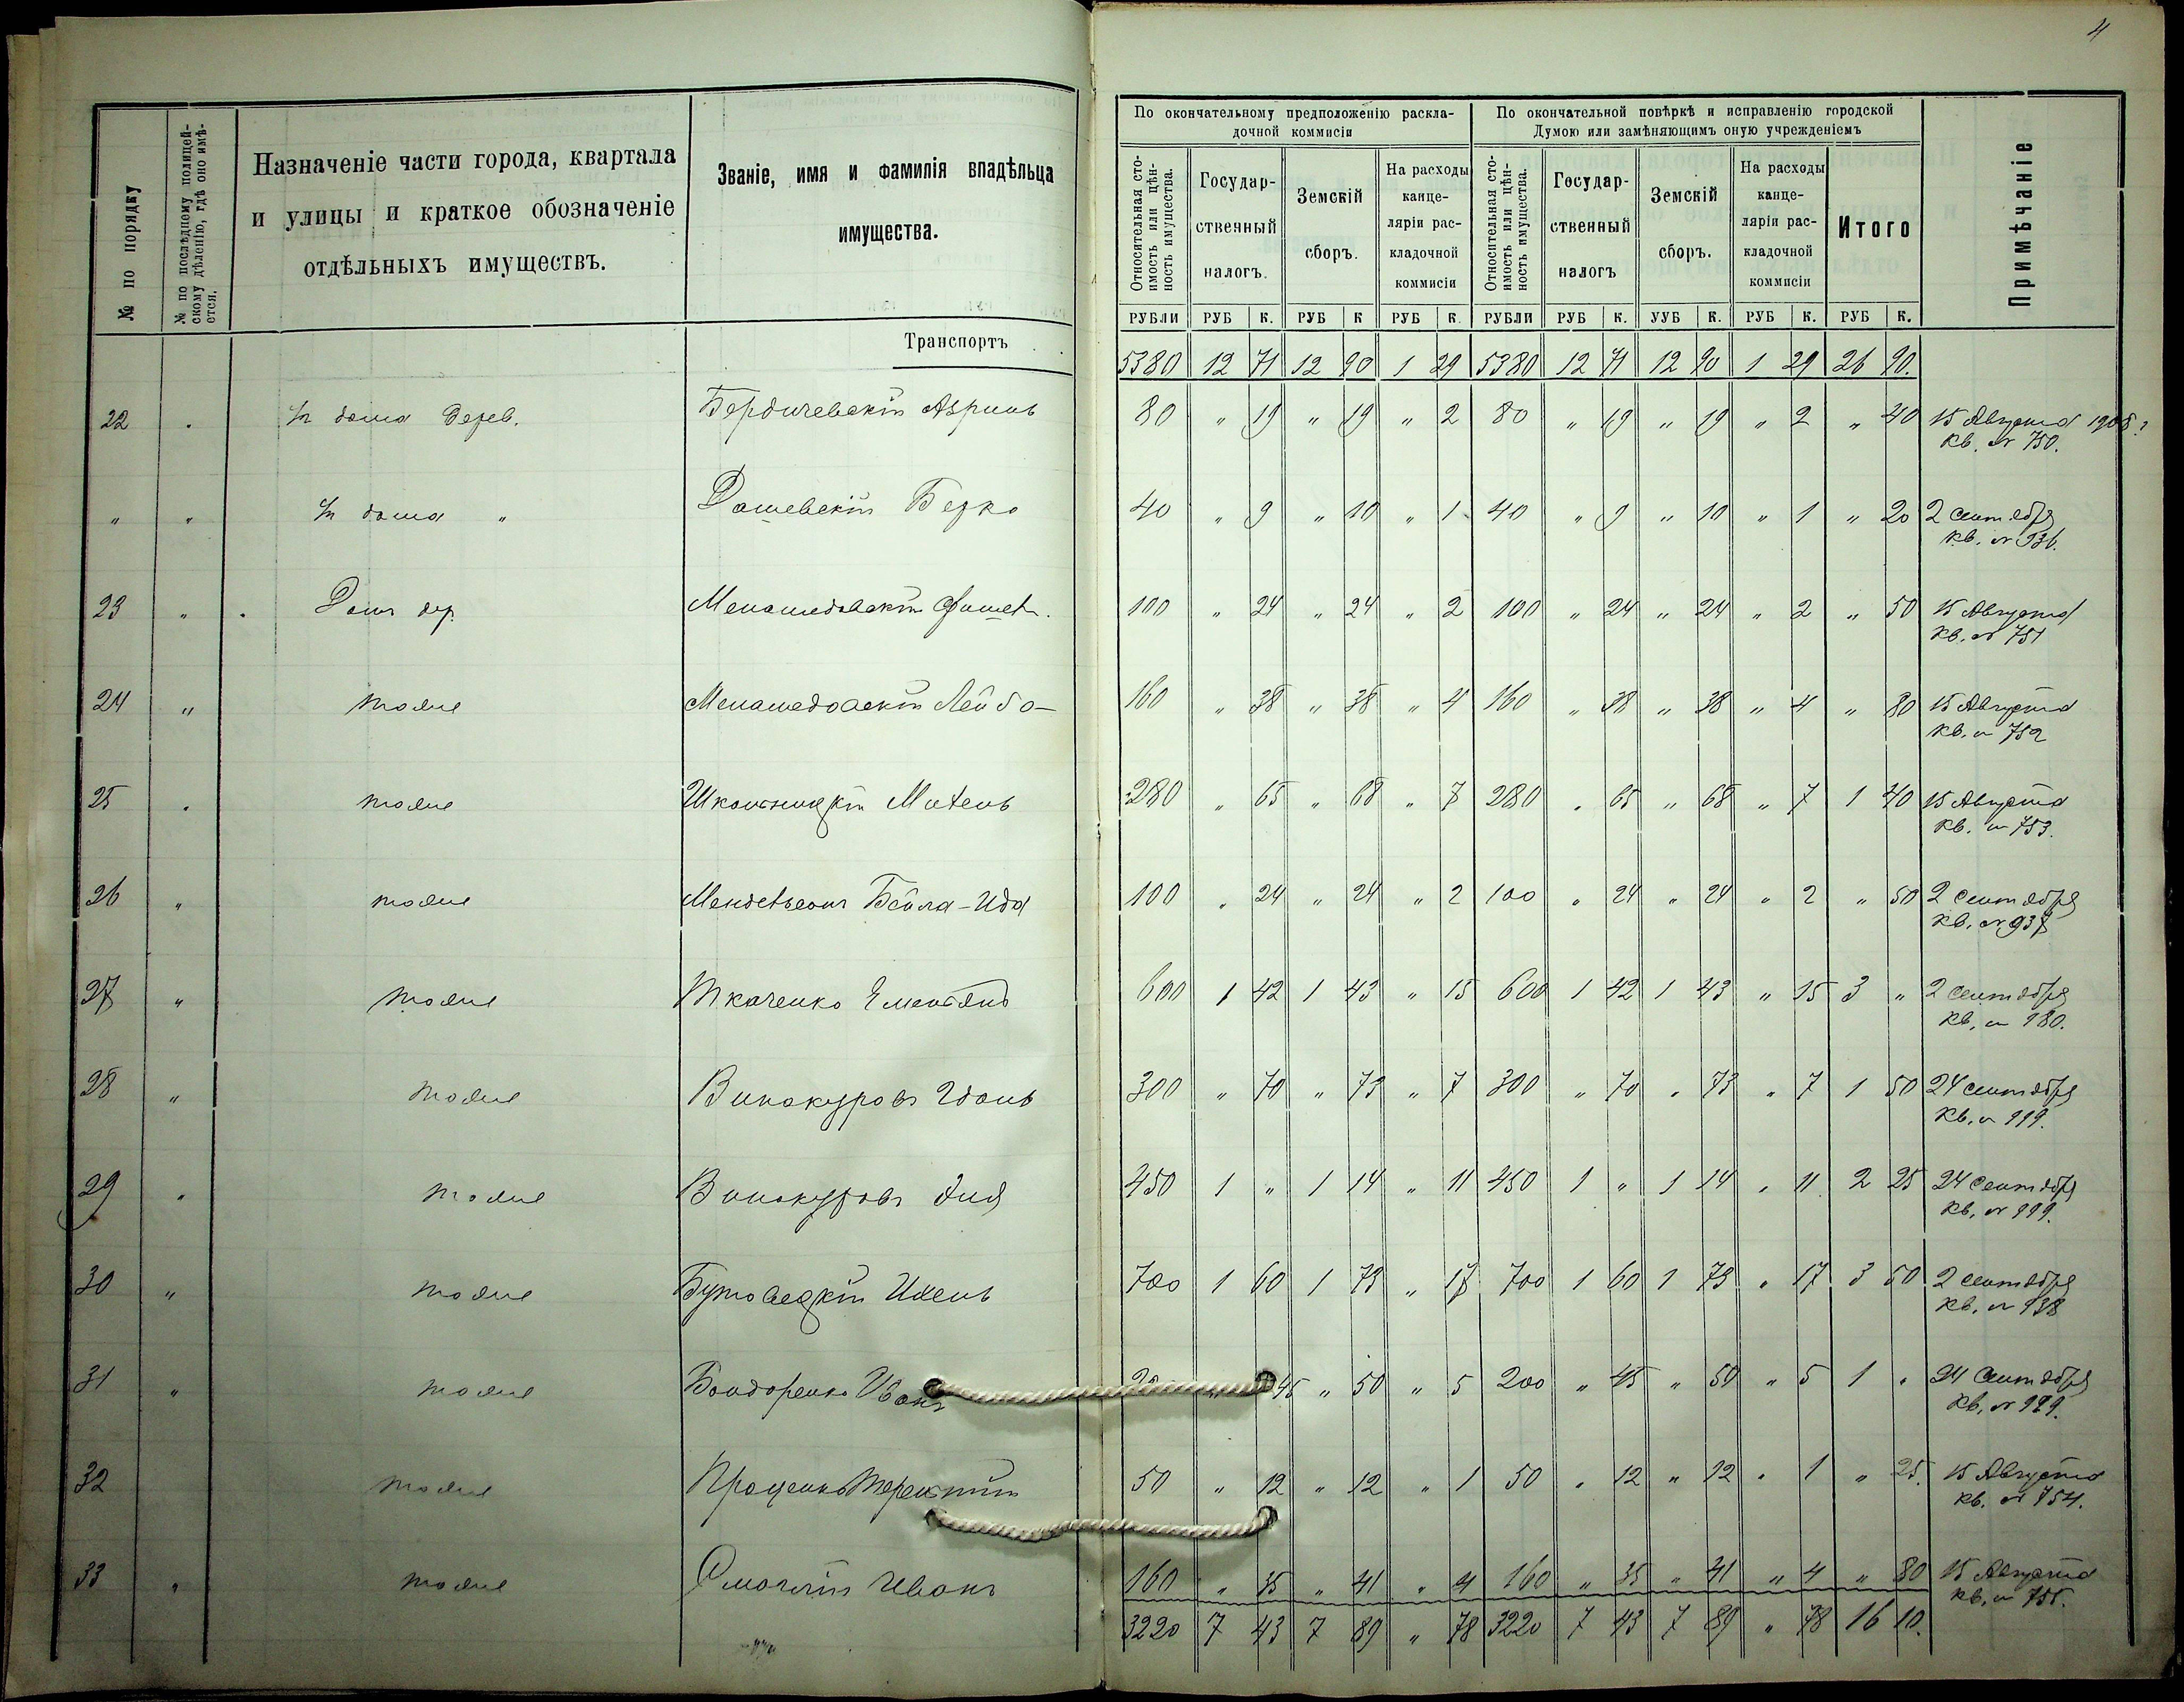 4
№ по порядку
№ по послѣднему полицей-
скому дѣленію, гдѣ оно имѣ-
ется.
Назначеніе части города, квартала
и улицы и краткое обозначеніе
отдѣльныхъ имуществъ.
Званіе, имя и фамилія владѣльца
имущества.
По окончательному предположенію раскла-
дочной коммисіи
По окончательной повѣркѣ и исправленію городской
Думою или замѣняющимъ оную учрежденіемъ
Относительная сто-
имость или цѣн-
ность имущества.
Государ-
ственный
налогъ.
Земскій
сборъ.
На расходы
канце-
ляріи рас-
кладочной
коммисіи
Относительная сто-
имость или цѣн-
ность имущества.
Государ-
ственный
налогъ
Земскій
сборъ.
На расходы
канце-
ляріи рас-
кладочной
коммисіи
Итого
Примѣчаніе
РУБЛИ РУБ К. РУБ К РУБ К. РУБЛИ РУБ К. УУБ К. РУБ К. РУБ К.
Транспортъ 5380 12 71 12 90 1 29 5380 12 71 12 90 1 29 26 90.
22 ½ дома дерев. Бердичевскій 80 " 19 " 19 " 2 80 " 19 " 19 " 2 " 40 15 Августа 1908
кв. № 750.
" " ½ дома " Дашевскій Берко 40 " 9 " 10 " 1 40 " 9 " 10 " 1 " 20 2 сентября
кв. № 936.
23 " Домъ дер. Менашедовскій 100 " 24 " 24 " 2 100 " 24 " 24 " 2 " 50 15 Августа
кв. № 751
24 " тоже Менашедовскій Лейба 160 " 38 " 38 " 4 160 " 38 " 38 " 4 " 80 15 Августа
кв. № 752
25 " тоже 280 " 65 " 68 " 7 280 " 65 " 68 " 7 1 40 15 Августа
кв. № 753.
26 " тоже Мендельсонъ Бейла-Ида 100 " 24 " 24 " 2 100 " 24 " 24 " 2 " 50 2 сентября
кв. № 937
27 " тоже Ткаченко Емельянъ 600 1 42 1 43 " 15 600 1 42 1 43 " 15 3 " 2 сентября
кв. №
28 " тоже Винокуровъ 300 " 70 " 73 " 7 300 " 70 " 73 " 7 1 50 24 сентября
кв. №
29 " тоже Винокуровъ 450 1 " 1 14 " 11 450 1 " 1 14 " 11 2 25 24 сентября
кв. №
30 " тоже 700 1 60 1 73 " 17 700 1 60 1 73 " 17 3 50 2 сентября
кв. № 938
31 " тоже Бондаренко Иванъ 45 " 50 " 5 200 " 45 " 50 " 5 1 " 24 Сентября
кв. №
32 тоже Проценко Терентій 50 " 12 " 12 " 1 50 " 12 " 12 " 1 " 25. 15 Августа
кв. № 754.
33 " тоже Смоглій Иванъ 160 " 35 " 41 " 4 160 " 35 " 41 " 4 " 80 15 Августа
кв. № 755.
3220 7 43 7 89 " 78 3220 7 43 7 89 " 78 16 10.